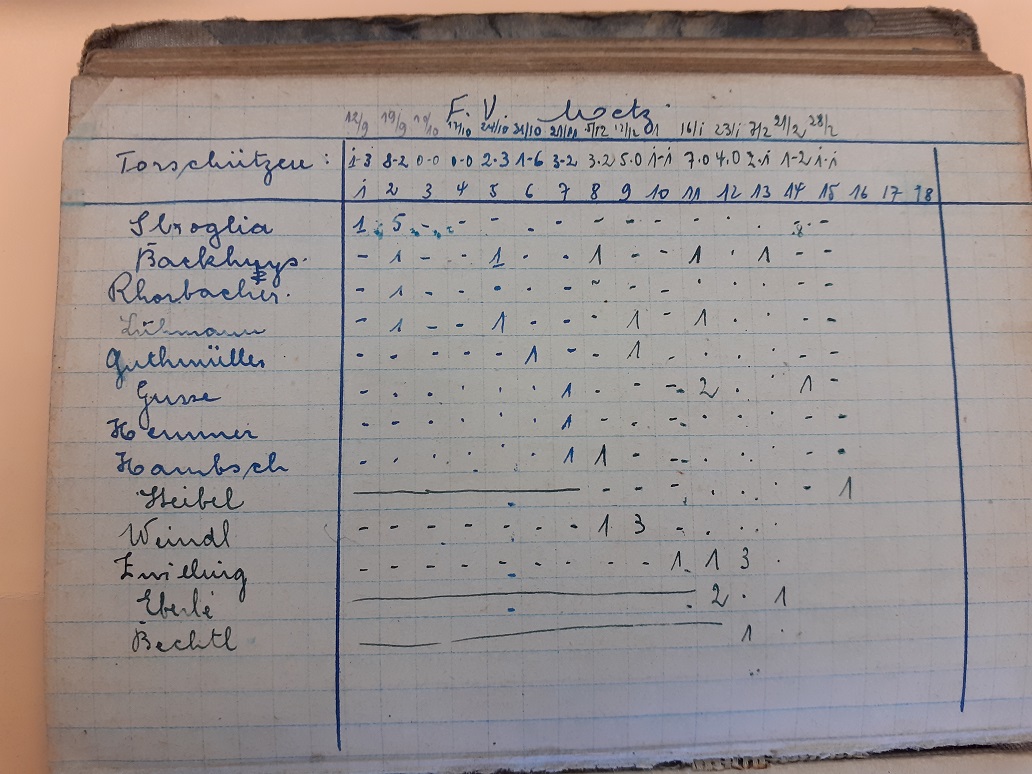 F. V. Metz
12/9 19/9 10/10 17/10 24/10 31/10 21/11 5/12 12/12 16/1 23/1 7/2 21/2 28/2
Torschützen: 1-3 8-2 0-0 0-0 2-3 1-6 3-2 3-2 5-0 1-1 7-0 4-0 2-1 1-2 1-1
1 2 3 4 5 6 7 8 9 10 11 12 13 14 15 16 17 18
Sbroglia 1 5 - - - - - - - - - - - -
Backhuys - 1 - - 1 - - 1 - - 1 - 1 - -
Rhorbacher - 1 - - - - - - - - - - - - -
Lühmann - 1 - - 1 - - - 1 - 1 - - - -
Guthmüller - - - - - 1 - - 1 - - - - - -
Gusse - - - - - - 1 - - - 2 - - 1 -
Hemmer - - - - - - 1 - - - - - - - -
Hambsch - - - - - - 1 1 - - - - - - -
Heibel - - - - - - - 1
Weindl - - - - - - - 1 3 - - - -
Zwilling - - - - - - - - - 1 1 3 -
Eberlé 2 - 1
Bechtl 1 -